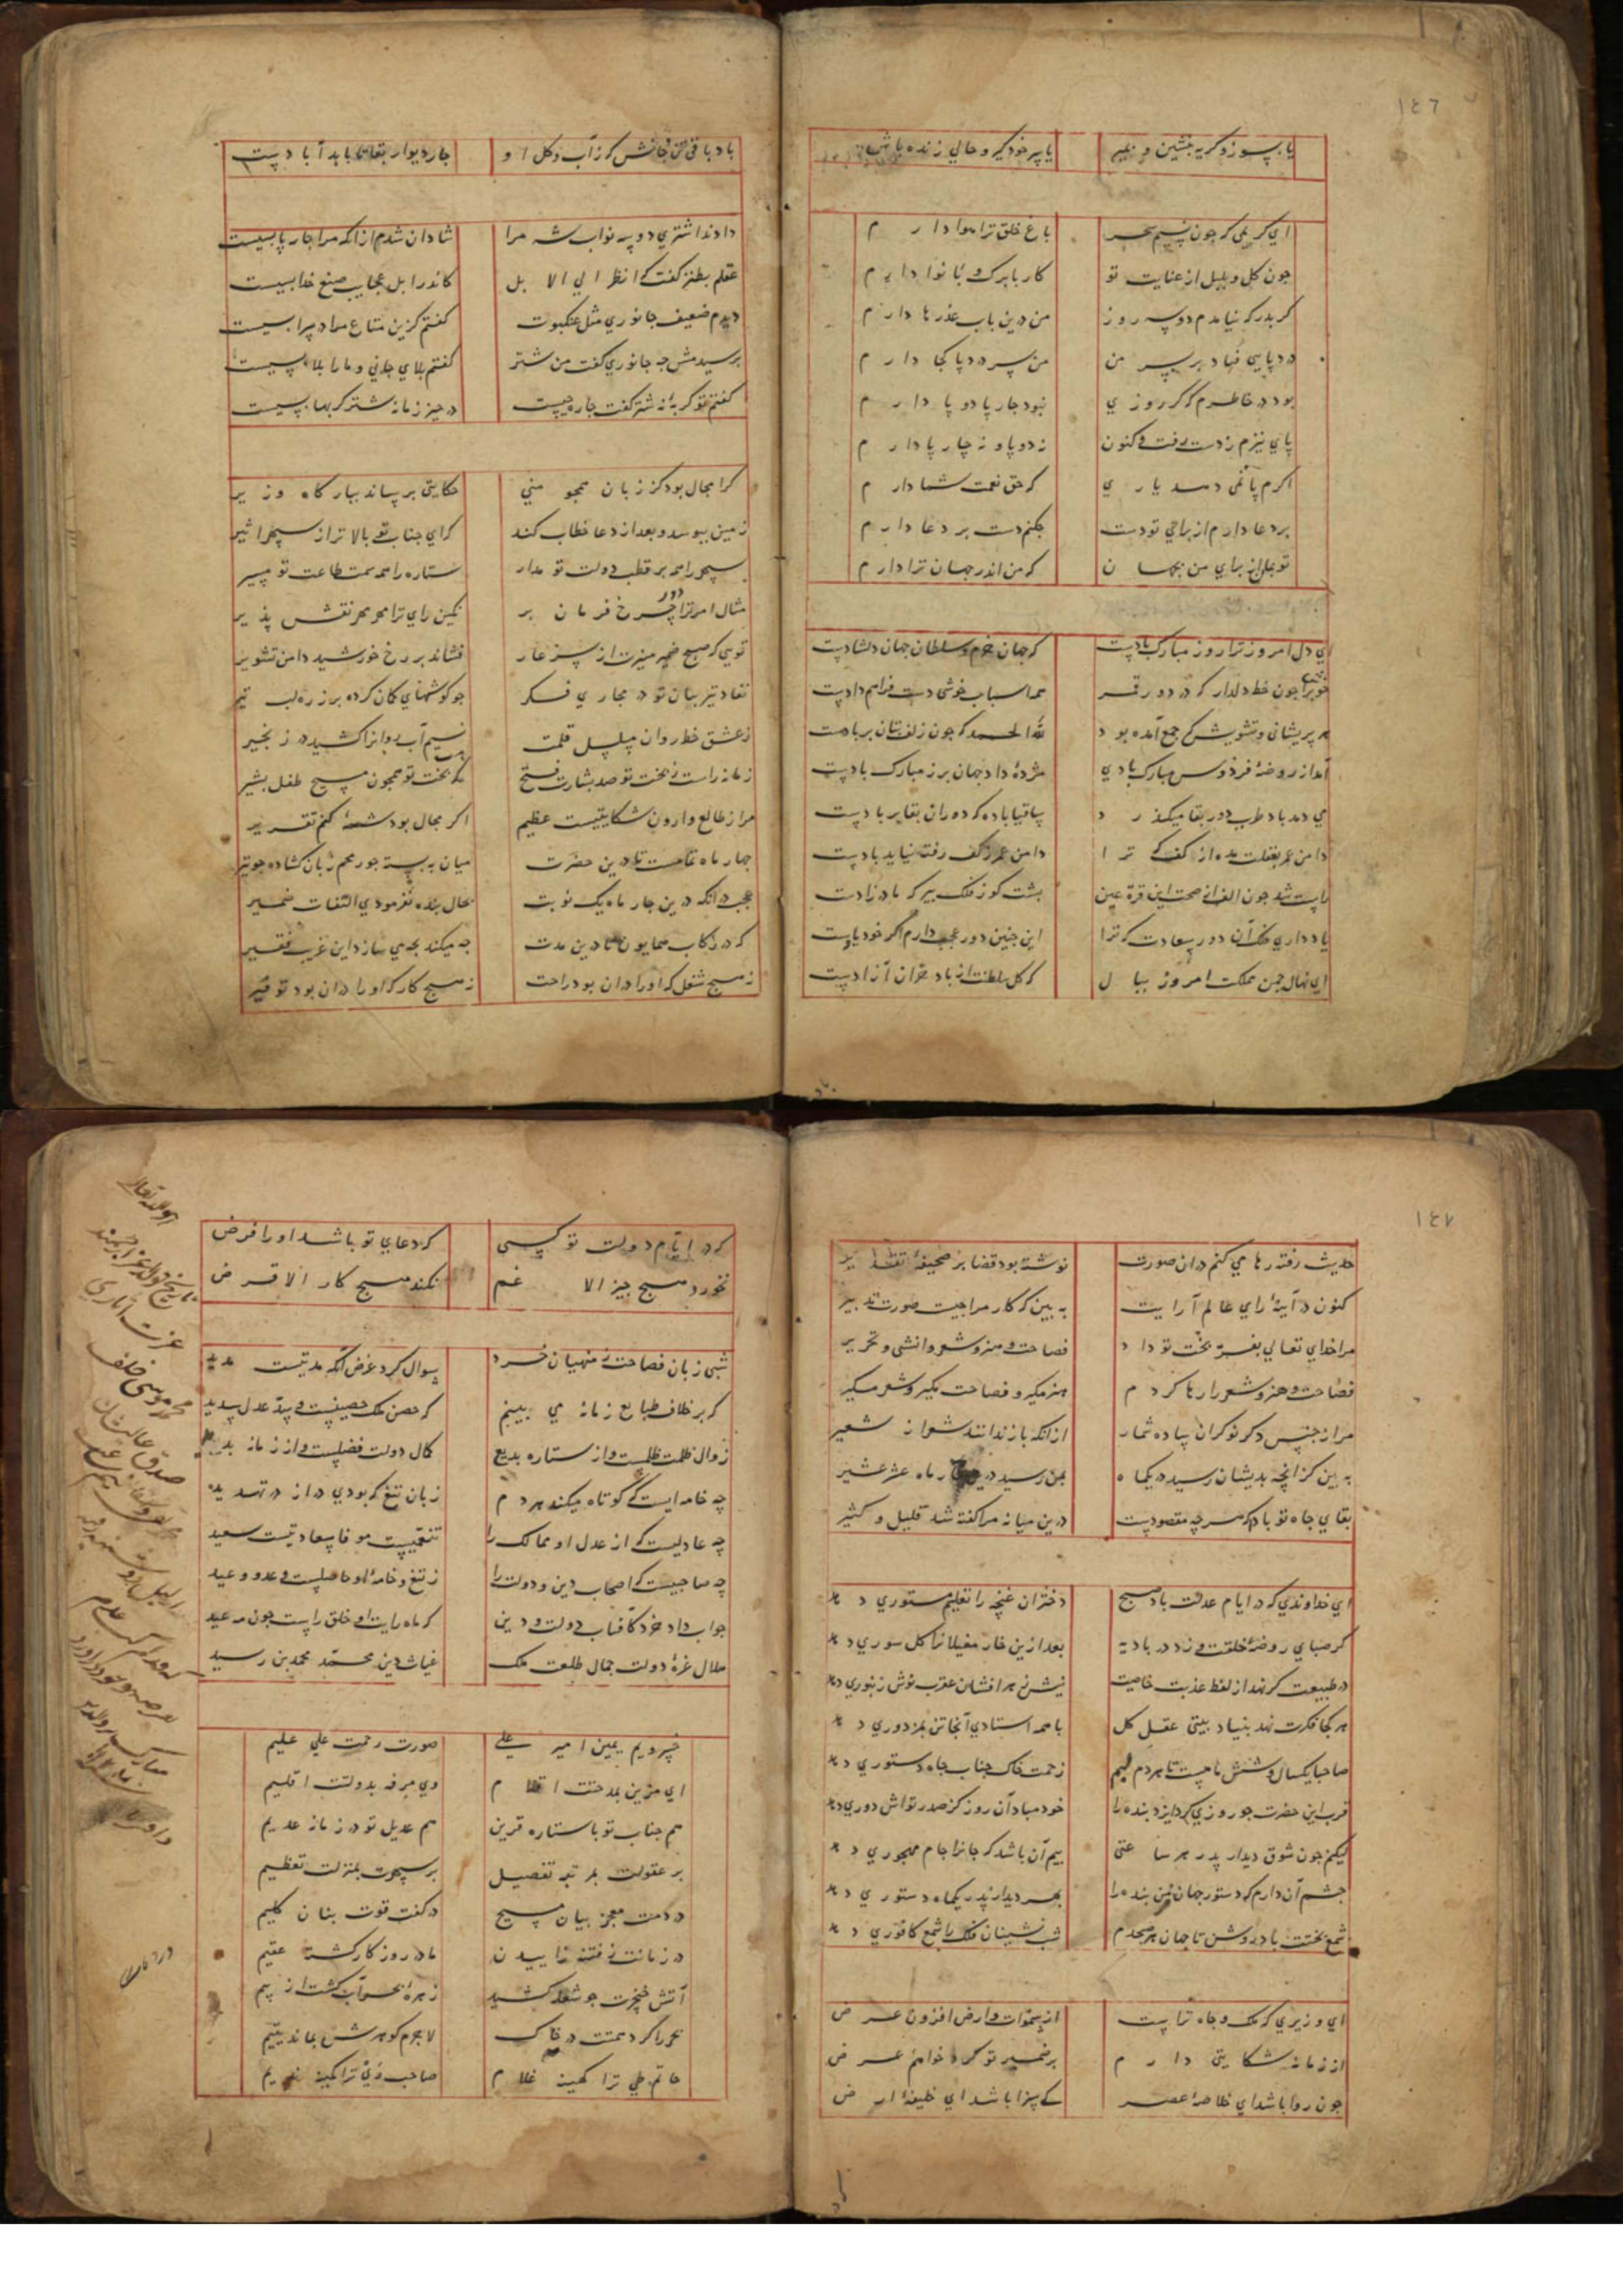 ١٤٦
یا بسوز و گریه بنشین و بمیر یا پی خود گیر و حالی زنده باش
ای کریمی که چون نسیم سحر باغ خلق ترا هوا دارم
چون گل و بلبل از عنایت تو کار با برک و با نوا دارم
گر بدرگه نیامدم دو سه روز من درین باب عذرها دارم
درد پایی فتاد بر سر من من سر درد پا کجا دارم
بود در خاطرم که گر روزی نبود چارپا دو پا دارم
پای نیزم ز دست رفت و کنون نه دو پا و نه چارپا دارم
اگرم پا نمی دهد یاری که حق نعمت شما دارم
بر دعا دارم از برای تو دست چکنم دست بر دعا دارم
که من اندر جهان ترا دارم
ای دل امروز ترا روز مبارک بادست که جهان خرم و سلطان جهان دلشادست
همه اسباب خوشی دست فراهم دادست
هر پریشانی و تشویش که جمع آمده بود لله الحمد که چون زلف بتان بر بادست
آمد از روضه فردوس مبارک بادی مژده داد جهان را ز مبارک بادست
می دهد باد طرب دور بقا میگذرد ساقیا باده که دوران بقا بر بادست
دامن عمر بغفلت مده از کف که ترا دامن عمر ز کف رفته نیاید بادست
راست شد چون الف از صحت این قرة عین پشت کوز فلک پیر که مادر زادست
یاد داری فلک آن دور سعادت که ترا این چنین دور عجب دارم اگر خود یادست
ای نهال چمن مملکت امروز ببال که گل سلطنت از باد خزان آزادست
چار دیوار بقا تا بابد آبادست
دادند اشتری دو سه نواب شه مرا شادان شدم از آنکه مرا چارپا بسیست
عقلم بطنز گفت که انظر الی الابل کاندر ابل عجایب صنع خدا بسیست
دیدم ضعیف جانوری مثل عنکبوت گفتم کزین متاع مرا در سرا بسیست
پرسیدمش چه جانوری گفت من شتر گفتم بلای جانی و ما را بلا بسیست
گفتم تو گربه نه شتر گفت چاره چیست در حیز زمانه شتر گربها بسیست
کرا مجال بود کز زبان همچو منی حکایتی برساند ببارگاه وزیر
زمین ببوسد و بعد از دعا خطاب کند که ای جناب تو بالاتر از سپهر اثیر
سپهر را همه بر قطب دولت تو مدار ستاره را همه سمت طاعت تو مسیر
مثال امر ترا چرخ فرمان بر نگین رای ترا مهر مهر نقش پذیر
تویی که صبح ضمیر منیرت از سر عار فشاند بر رخ خورشید دامن تشویر
نفاد تیر بیان تو در مجاری فکر چو گوشهای کمان کرده بر زره لب تیر
ز عشق خط روان سلسل قلمت نسیم آب روانرا کشیده در زنجیر
زمانه راست ز بخت تو صد بشارت فتح که بخت تو همچون مسیح طفل بشیر
مرا ز طالع وارون شکایتیست عظیم اگر مجال بود شمه کنم تقریر
چهار ماه تمامست تا درین حضرت میان به بسته چو رمحم زبان گشاده چو تیر
عجب در آنکه درین چار ماه یک نوبت بحال بنده نفرمودی التفات ضمیر
که در رکاب همایون تا درین مدت چه میکند بچه می سازد این غریب فقیر
نه هیچ شغل که او را در آن بود راحت نه هیچ کار که او را در آن بود توفیر
١٤٧
حدیث رفته رها می کنم در آن صورت نوشته بود قضا بر صحیفه تقدیر
کنون در آینه رای عالم آرایت به بین که کار مرا چیست صورت تدبیر
مرا خدای تعالی بفر بخت تو داد فصاحت و هنر و شعر و انشی و تحریر
فصاحت و هنر و شعر را رها کردم هنر مگیر و فصاحت مگیر و شعر مگیر
مرا ز جنس دگر نوکران پیاده شمار از آنکه باز ندانند شعر از شعیر
به بین کز آنچه بدیشان رسید در یکماه بمن رسید درین چار ماه عشر عشیر
بقای جاه تو بادا که هر چه مقصودست درین میانه مرا گفته شد قلیل و کثیر
ای خداوندی که در ایام عدلت باد صبح دختران غنچه را تعلیم مستوری دهد
گر صبای روضه خلقت وزد در بادیه بعد ازین خار مغیلانرا گل سوری دهد
در طبیعت گر نهد از لفظ عذبت خاصیت نیش زهر افشان عقرب نوش زنبوری دهد
هر کجا فکرت نهد بنیاد بیتی عقل کل با همه استادی آنجا تن بمزدوری دهد
صاحبا یکسال و شش ماهست تا هر دم لبم زحمت خاک جناب جاه دستوری دهد
قرب این حضرت چو روزی کرد ایزد بنده را خود مباد آن روز کز صدر تواش دوری دهد
لیکنم چون شوق دیدار پدر هر ساعتی بیم آن باشد که جانرا جام مهجوری دهد
چشم آن دارم که دستور جهان من بنده را بهر دیدار پدر یکماه دستوری دهد
شمع بختت باد روشن تا جهان هر صبحدم شب نشینان فلک را شمع کافوری دهد
ای وزیری که ملک و جاه تراست از سموات و ارض افزون عرض
از زمانه شکایتی دارم بر ضمیر تو کرد خواهم عرض
چون روا باشد ای خلاصه عصر کی سزا باشد ای خلیفه ارض
که در ایام دولت تو کسی که دعای تو باشد او را فرض
نخورد هیچ چیز الا غم نکند هیچ کار الا قرض
شبی زبان فصاحت ز منهیان خرد سوال کرد غرض آنکه مدتیست مدید
که بر خلاف طبایع زمانه می بینم که حصن ملک حصینست و سد عدل سدید
زوال ظلمت ظلمست و از ستاره بدیع کمال دولت فضلست و از زمانه بدیع
چه خامه ایست که کوتاه میکند هر دم زبان تیغ که بودی دراز در تهدید
چه عادلیست که از عدل او ممالک را
چه صاحبیست که اصحاب دین و دولت را ز تیغ و خامه او حاصلست وعد و وعید
جواب داد خرد کافتاب دولت و دین که ماه رایت او خلق راست چون مه عید
هلال غره دولت جمال طلعت ملک غیاث دین محمد محمد بن رشید
خسرویم یمین امیر علی صورت رحمت علی علیم
ای مزین بمدحتت اقلام وی مرفه بدولتت اقلیم
هم جناب تو با ستاره قرین هم عدیل تو در زمانه عدیم
بر عقولت بمرتبه تفصیل بر سپهرت بمنزلت تعظیم
در دمت معجز بیان مسیح در کفت قوت بنان کلیم
در زمانت ز فتنه زاییدن مادر روزگار گشته عقیم
آتش خنجرت چو شعله کشید زهره بحر آب گشت از بیم
بحر را کرد همتت در خاک لاجرم گوهرش بماند یتیم
حاتم طی ترا کمینه غلام صاحب ری ترا کمینه ندیم